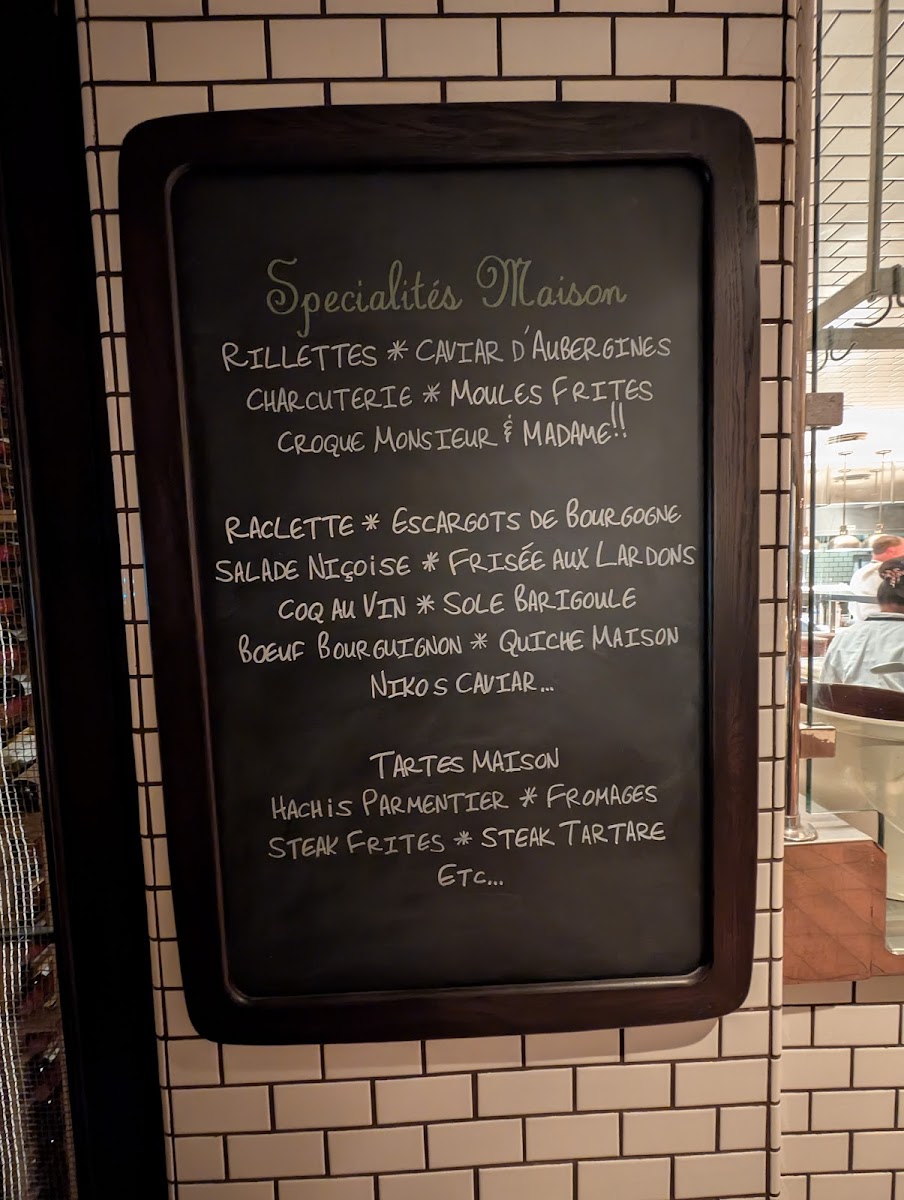 Specialités Maison
RILLETTES * CAVIAR D'AUBERGINES
CHARCUTERIE * MOULES FRITES
CROQUE MONSIEUR & MADAME!!
RACLETTE * ESCARGOTS DE BOURGOGNE
SALADE NIÇOISE * FRISÉE AUX LARDONS
COQ AU VIN * SOLE BARIGOULE
BOEUF BOURGUIGNON * QUICHE MAISON
NIKOS CAVIAR...
TARTES MAISON
HACHIS PARMENTIER * FROMAGES
STEAK FRITES * STEAK TARTARE
ETC...